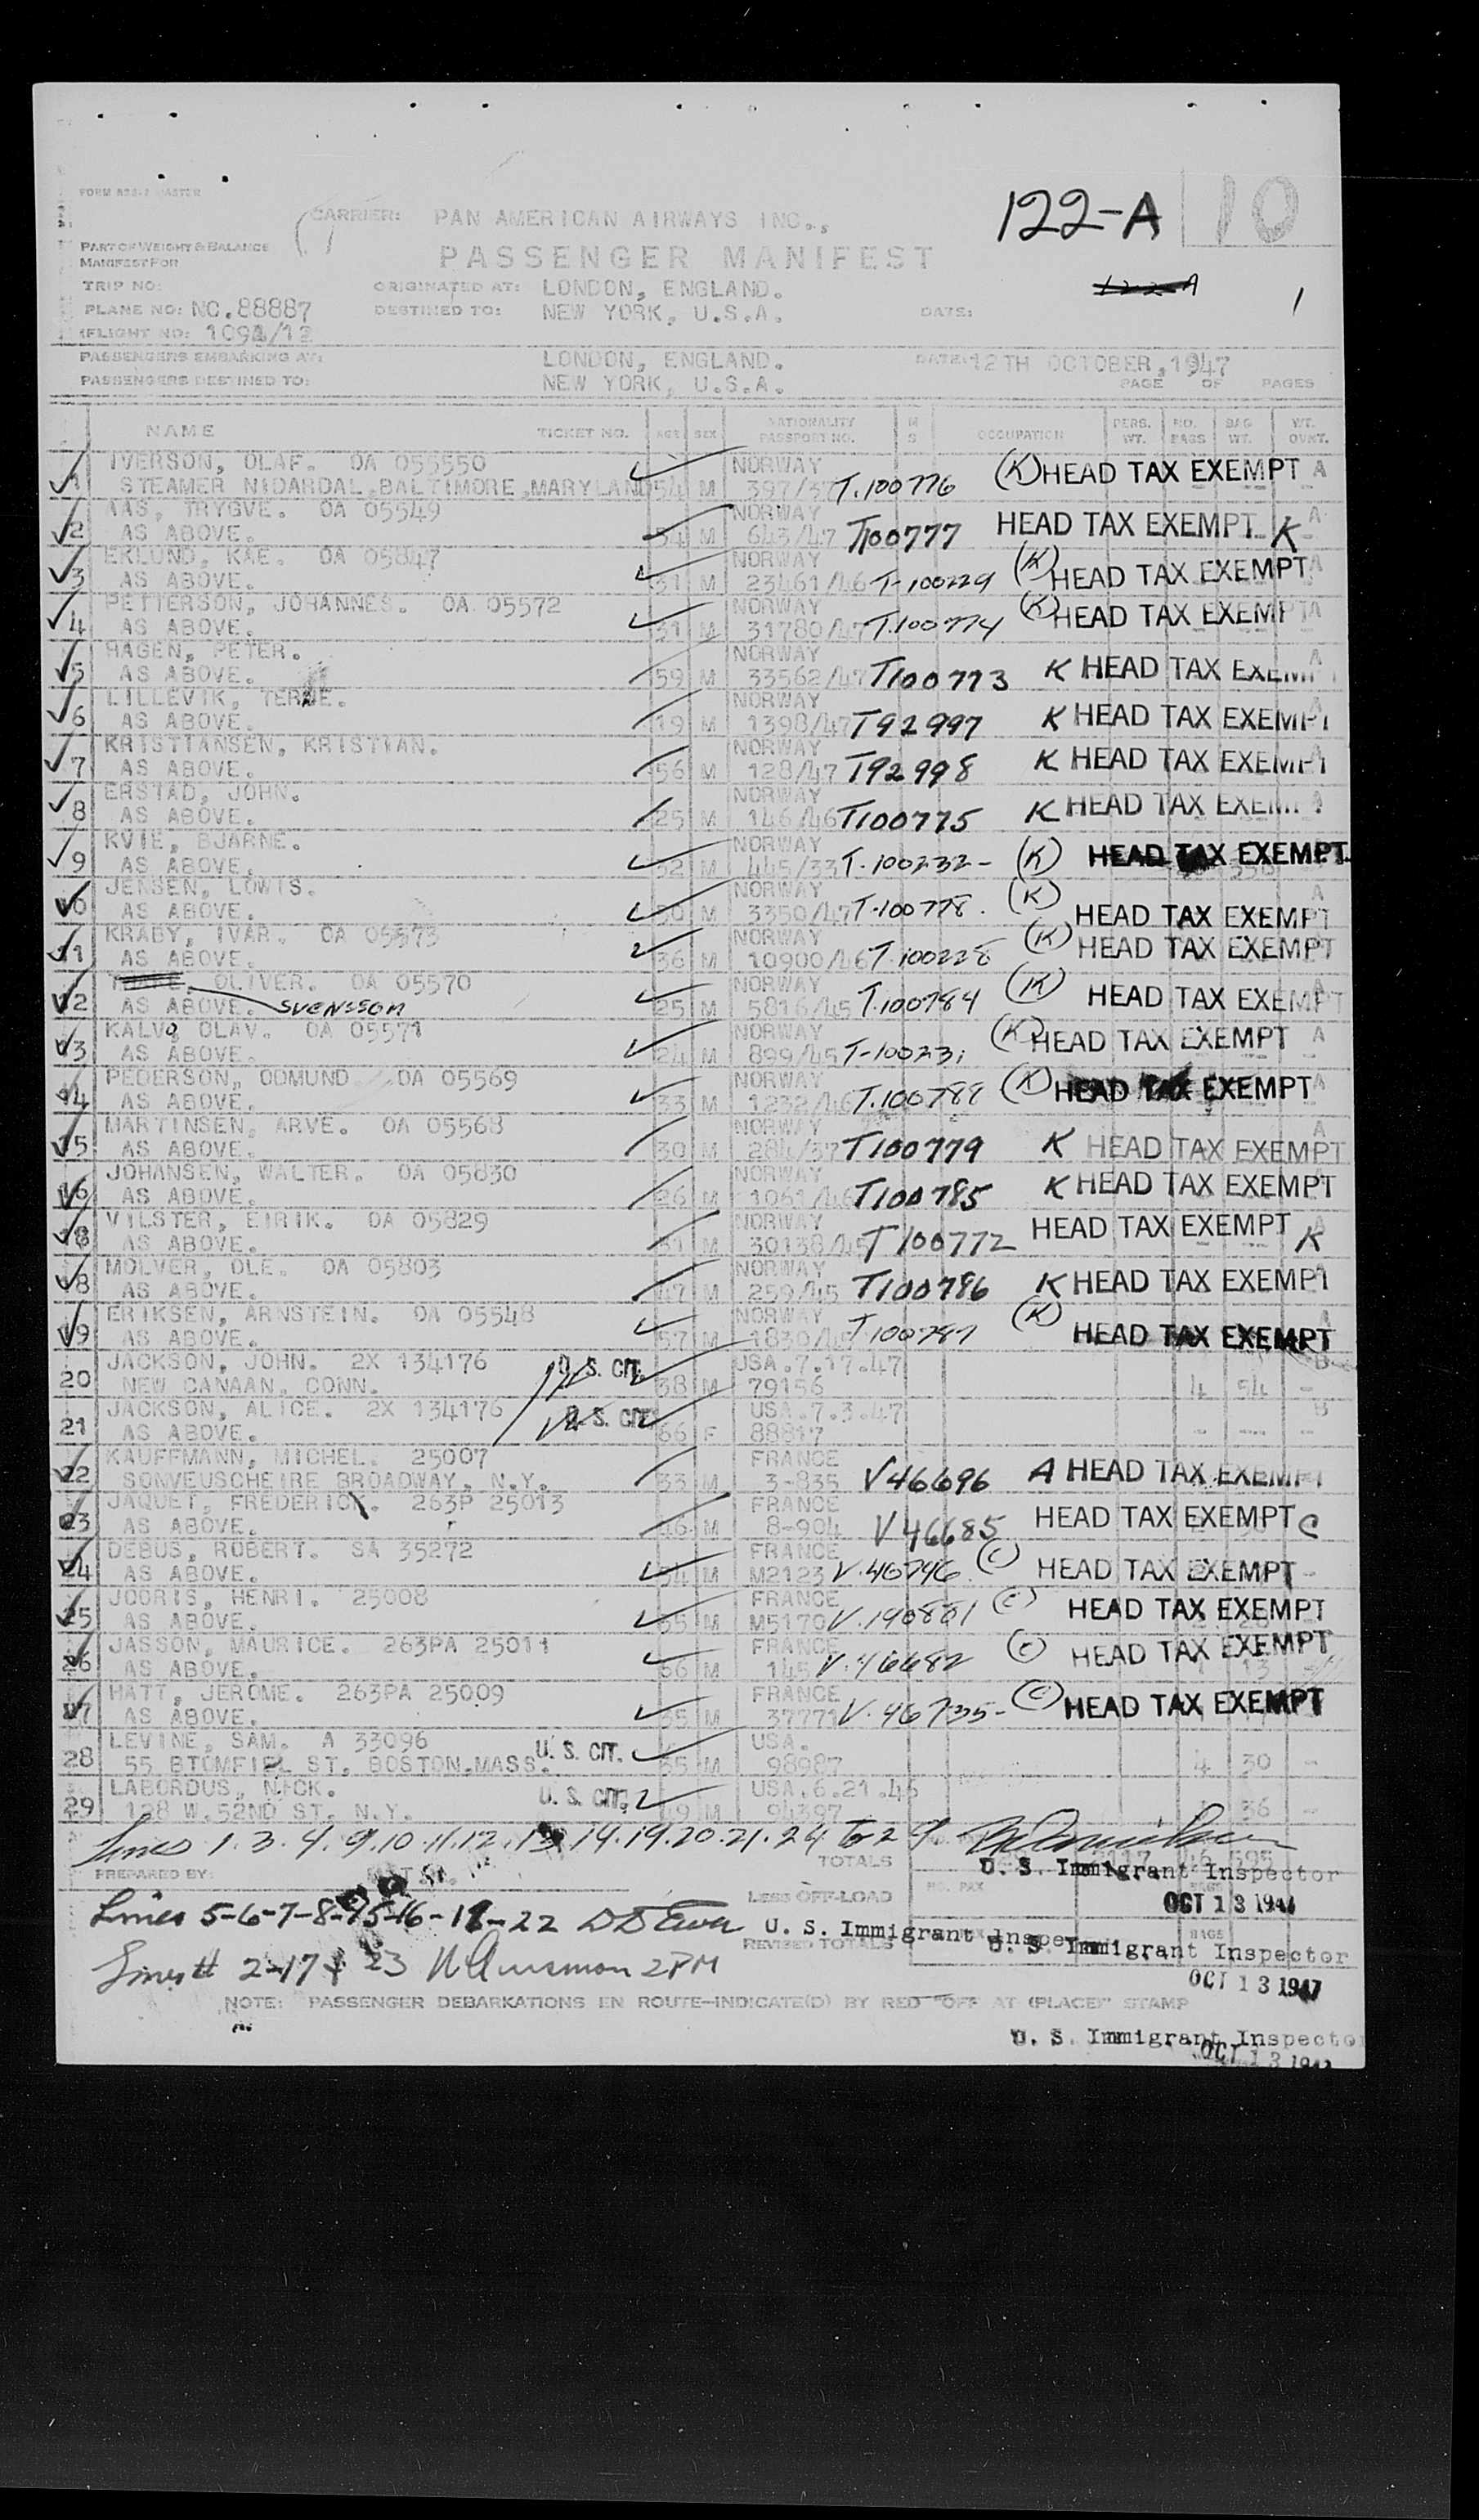 122-A 10
FORM
CARRIER: PAN AMERICAN AIRWAYS INC.,
PART OF WEIGHT & BALANCE
MANIFEST FOR
PASSENGER MANIFEST
TRIP NO:
ORIGINATED AT: LONDON, ENGLAND.
122A
PLANE NO: NC.88887 DESTINED TO: NEW YORK, U.S.A. DATE: 1
FLIGHT NO: 109 /12
PASSENGERS EMBARKING AT: LONDON, ENGLAND. DATE: 12TH OCTOBER, 1947
PASSENGERS DESTINED TO: NEW YORK, U.S.A. PAGE OF PAGES
NAME TICKET NO. AGE SEX NATIONALITY PASSPORT NO. M S OCCUPATION PERS. WT. NO. BAGS BAG WT. WT. OVRT.
IVERSON, OLAF. OA 055550 NORWAY (K) HEAD TAX EXEMPT A
1 STEAMER NIDARDAL, BALTIMORE, MARYLAND 54 M 397/37 T.100776
AAS, TRYGVE. OA 05549 NORWAY HEAD TAX EXEMPT K A
2 AS ABOVE. 54 M 643/47 T100777
EKLUND, KAE. OA 05847 NORWAY (K) HEAD TAX EXEMPT A
3 AS ABOVE. 31 M 23461/46 T-100229
PETTERSON, JOHANNES. OA 05572 NORWAY (K) HEAD TAX EXEMPT A
4 AS ABOVE. 31 M 31780/47 T.100774
HAGEN, PETER. NORWAY A
5 AS ABOVE. 59 M 33562/47 T100773 K HEAD TAX EXEMPT
LILLEVIK, TERJE. NORWAY
6 AS ABOVE. 19 M 1398/47 T92997 K HEAD TAX EXEMPT
KRISTIANSEN, KRISTIAN. NORWAY
7 AS ABOVE. 56 M 128/47 T92998 K HEAD TAX EXEMPT
ERSTAD, JOHN. NORWAY
8 AS ABOVE. 25 M 146/46 T100775 K HEAD TAX EXEMPT
KVIE, BJARNE. NORWAY
9 AS ABOVE. 52 M 445/33 T-100232- (K) HEAD TAX EXEMPT
JENSEN, LOWIS. NORWAY (K) A
10 AS ABOVE. 50 M 3350/47 T-100778. HEAD TAX EXEMPT
KRABY, IVAR. OA 05573 NORWAY (K) HEAD TAX EXEMPT
11 AS ABOVE. 36 M 10900/46 T.100228
OLIVER. OA 05570 NORWAY (K)
12 AS ABOVE. SVENSSON 25 M 5816/45 T.100784 HEAD TAX EXEMPT
KALVO OLAV. OA 05571 NORWAY (K) HEAD TAX EXEMPT A
13 AS ABOVE. 24 M 899/45 T-100231
PEDERSON, ODMUND. OA 05569 NORWAY (K) HEAD TAX EXEMPT A
14 AS ABOVE. 33 M 1232/46 T.100788
MARTINSEN, ARVE. OA 05568 NORWAY A
15 AS ABOVE. 30 M 284/37 T100779 K HEAD TAX EXEMPT
JOHANSEN, WALTER. OA 05830 NORWAY
16 AS ABOVE. 26 M 1061/46 T100785 K HEAD TAX EXEMPT
VILSTER, EIRIK. OA 05829 NORWAY HEAD TAX EXEMPT K A
AS ABOVE. 31 M 30138/45 T100772
MOLVER, OLE. OA 05803 NORWAY
18 AS ABOVE. 47 M 259/45 T100786 K HEAD TAX EXEMPT
ERIKSEN, ARNSTEIN. OA 05548 NORWAY (K) A
19 AS ABOVE. 57 M 1830/45 T100787 HEAD TAX EXEMPT
JACKSON, JOHN. 2X 134176 U.S. CIT. USA.7.17.47 B
20 NEW CANAAN, CONN. 38 M 79156 4 54 -
JACKSON, ALICE. 2X 134176 U.S. CIT. USA.7.3.47 B
21 AS ABOVE. 66 F 88817 - - -
KAUFFMANN, MICHEL. 25007 FRANCE
22 SONVEUSCHEIRE BROADWAY, N.Y. 33 M 3-835 V46696 A HEAD TAX EXEMPT
JAQUET, FREDERIC. 263P 25013 FRANCE HEAD TAX EXEMPT C
23 AS ABOVE. 46 M 8-904 V46685
DEBUS, ROBERT. SA 35272 FRANCE (C)
24 AS ABOVE. 54 M M2123 V.46746 HEAD TAX EXEMPT
JOORIS, HENRI. 25008 FRANCE (C) HEAD TAX EXEMPT
25 AS ABOVE. 55 M M5170 V.190881
JASSON, MAURICE. 263PA 25011 FRANCE (C) HEAD TAX EXEMPT
26 AS ABOVE. 66 M 145 V.46682 1 13
HATT, JEROME. 263PA 25009 FRANCE (C) HEAD TAX EXEMPT
27 AS ABOVE. 35 M 37771 V.46735-
LEVINE, SAM. A 33096 U.S. CIT. USA.
28 55 BTOMFIEL ST, BOSTON, MASS. 55 M 98987 4 30 -
LABORDUS, NICK. U.S. CIT. USA.6.21.46
29 128 W.52ND ST. N.Y. 49 M 94397 36 -
Lines 1.3.4.9.10.11.12.13.14.19.20.21.24 to 29
PREPARED BY: TOTALS U. S. Immigrant Inspector
NO. PAX
OCT 13 1947
Lines 5-6-7-8-15-16-18-22 LESS OFF-LOAD
U. S. Immigrant Inspector
REVISED TOTALS U. S. Immigrant Inspector
Lines # 2-17 & 23 2PM
OCT 13 1947
NOTE: PASSENGER DEBARKATIONS EN ROUTE-INDICATE(D) BY RED "OFF AT (PLACE)" STAMP
U. S. Immigrant Inspector
OCT 13 1947